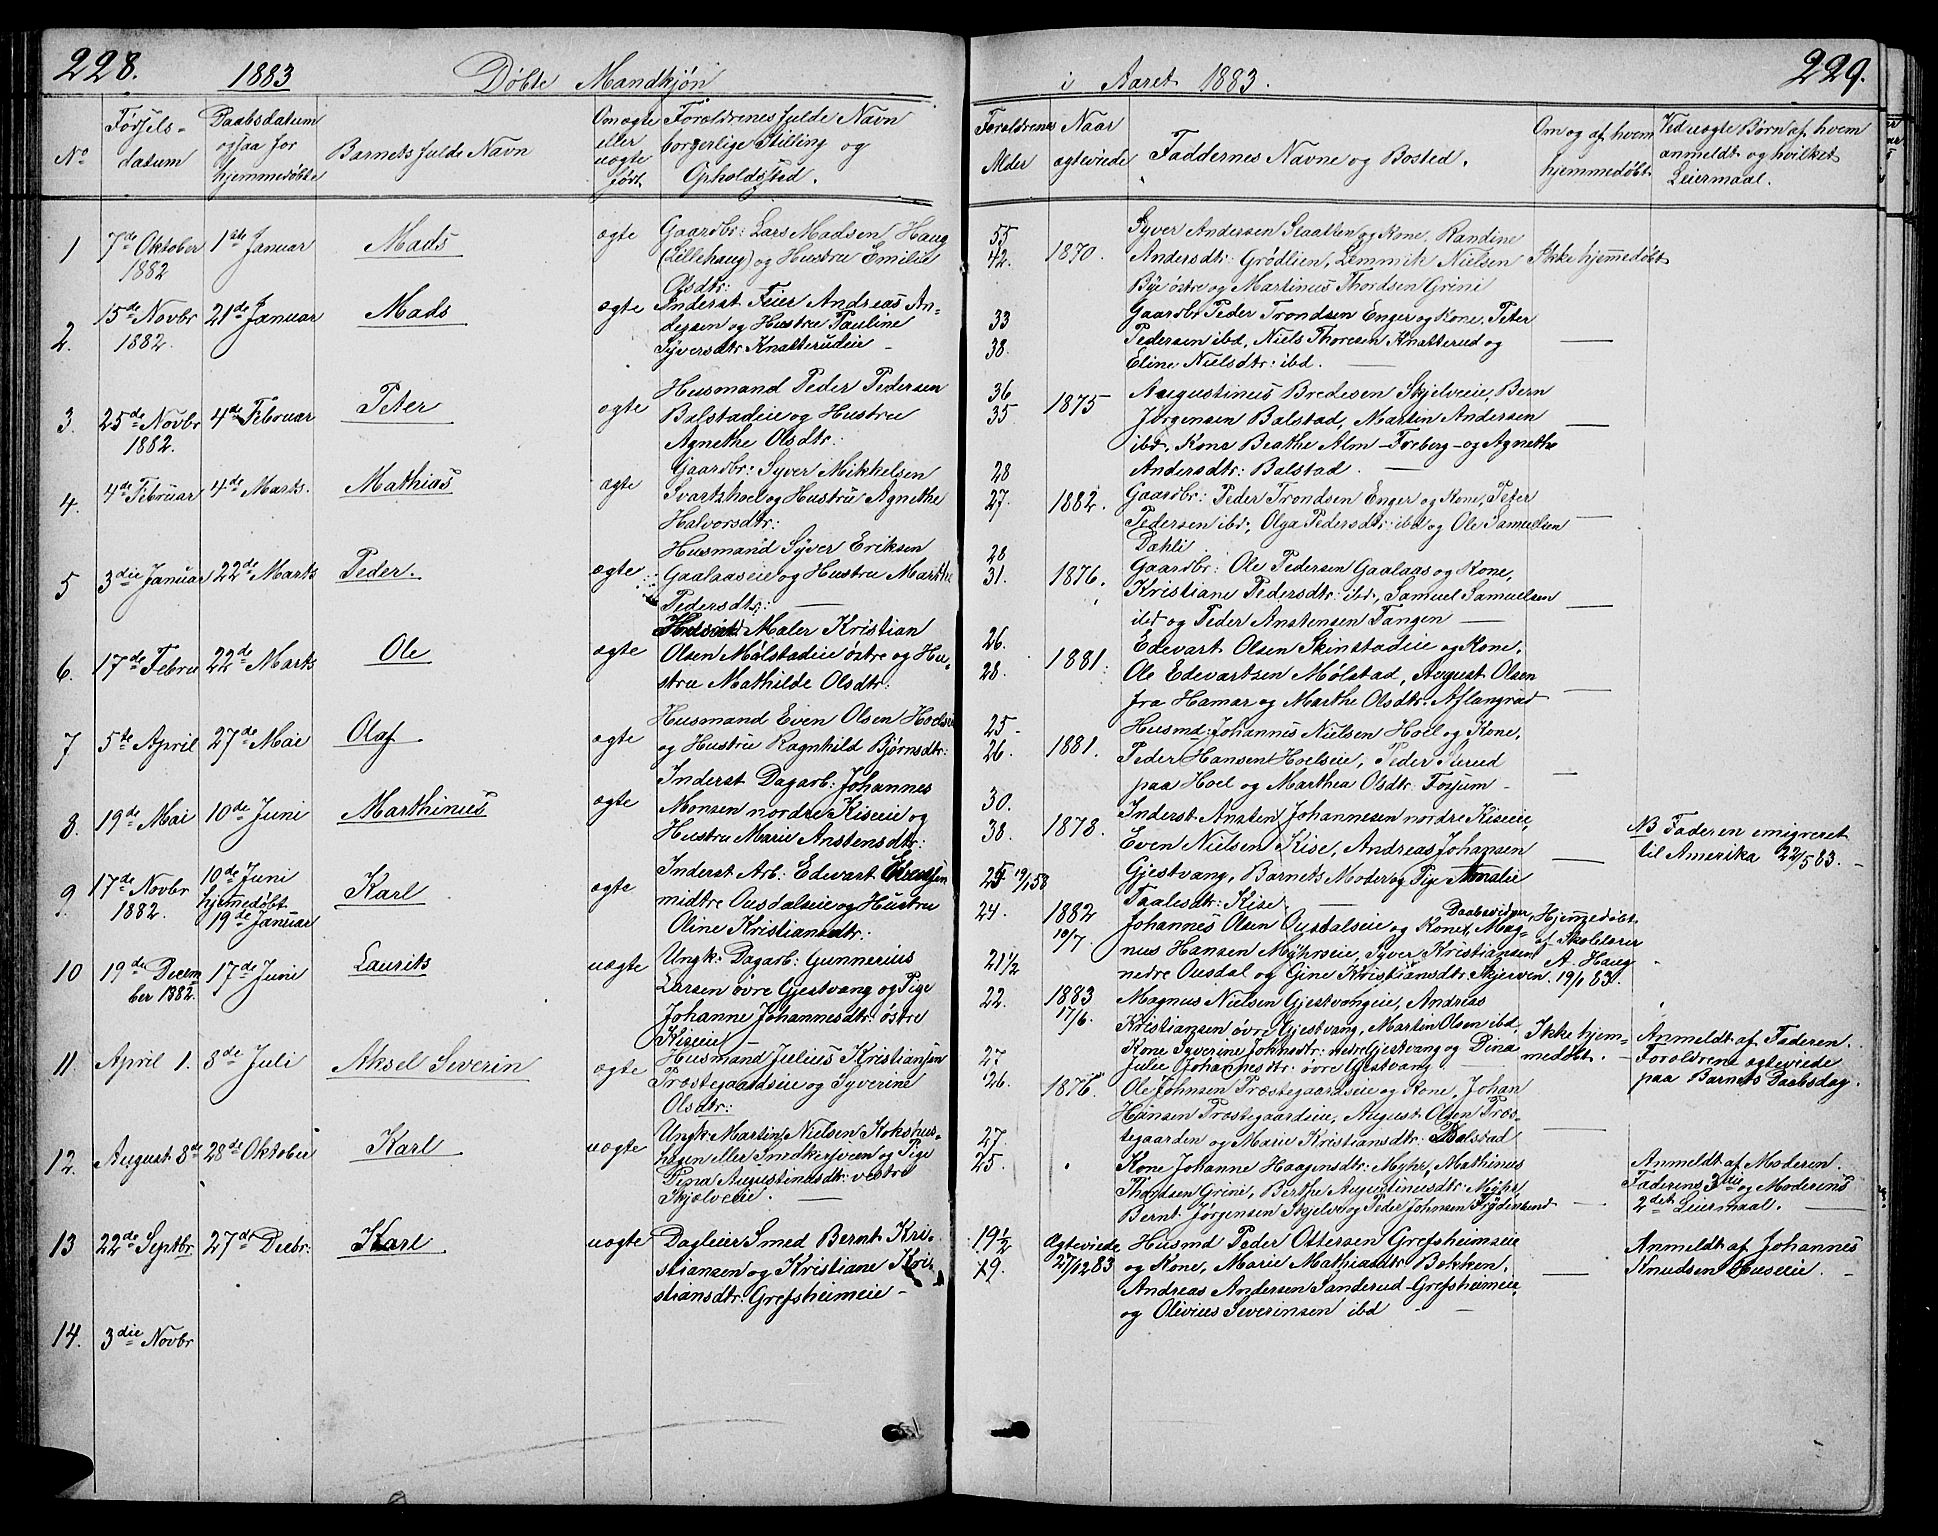 228.
1883
Døbte Mandkjøn
No
Fødsels-
datum
Daabsdatum
ogsaa for
hjemmedøbte
Barnets fulde Navn
Om ægte
eller
uægte
født
Forældrenes fulde Navn
borgerlige Stilling og
Opholdssted.
1
7de Oktober
1882
1ste Januar
Mads
ægte
Gaardbr: Lars Madsen Haug
(Lillehaug) og Hustru Emilie
Olsdtr:
2.
15de Novbr
1882.
21de Januar
Mads
ægte
Inderst Feier Andreas An-
dersen og Hustru Pauline
Syversdtr Knatterudeie
3.
25de Novbr
1882.
4de Februar
Peter
ægte
Husmand Peder Pedersen
Balstadeie og Hustru
Agnethe Olsdtr:
4.
4de Februar
4de Marts.
Mathias
ægte
Gaardbr: Syver Mikkelsen
Svartshoel og Hustru Agnethe
Halvorsdtr:
5
3die Januar
22de Marts
Peder.
ægte
Husmand Syver Eriksen
Gaalaaseie og Hustru Marthe
Pedersdtr:
6.
17de Febru
22de Marts
Ole
ægte
Maler Kristian
Olsen Mølstadeie østre og Hu-
stru Mathilde Olsdtr:
7
5te April
27de Mai
Olaf
ægte
Husmand Even Olsen Hoelseie
og Hustru Ragnhild Bjørnsdtr:
8.
19de Mai
10de Juni
Marthinus
ægte
Inderst Dagarb: Johannes
Monsen nordre Kiseie og
Hustru Marie Anstensdtr:
9.
17de Novbr
1882.
10de Juni
hjemedøbt
19de Januar
Karl
ægte
Inderst Arb: Edevart
midtre Ousdalseie og Hustru
Oline Kristiansdtr:
10
19de Decem
ber 1882.
17de Juni
Laurits
uægte
Ungk: Dagarb: Gunnerius
Larsen øvre Gjestvang og Pige
Johanne Johannesdtr: østre
Kiseie
11
April 1.
8de Juli
Aksel Severin
ægte
Husmand Julius Kristiansen
Præstegaardseie og Syverine
Olsdtr:
12.
August 8de
28de Oktober
Karl
uægte
Ungk: Martin Nielsen Kokshus-
hagen eller Snedkersveen og Pige
Dina Augustinusdtr: vestre
Skjælveeie.
13
22de Septbr
27de Decbr:
Karl
uægte
Dagleier Smed Bernt Kri-
stiansen og Kristiane Kri-
stiansdtr: Grefsheimeie
14.
3die Novbr
229.
i Aaret 1883.
Forældrenes
Alder
Naar
ægteviede
Faddernes Navne og Bosted.
Om og af hvem
hjemmedøbt
Ved uægte Børn af hvem
anmeldt og hvilket
Leiermaal.
55
42.
1870.
Syver Andersen Slaatten og Kone, Randine
Andersdtr: Grødlien, Lemmik Nielsen
Bye østre og Martinus Thordsen Grini
Ikke hjemmedøbt
33
38.
Gaardbr Peder Trondsen Enger og Kone, Peter
Pedersen ibd, Niels Thoresen Knatterud og
Eline Nielsdtr: ibd.
36
35
1875
Augustinus Bredesen Skjelveie, Bern
Jørgensen Balstad, Martin Andersen
ibd, Kone Beathe Alm-Freberg og Agnethe
Andersdtr: Balstad.
28
27.
1882.
Gaardbr: Peder Trondsen Enger og Kone, Peter
Pedersen ibd:, Olga Pedersdtr ibd og Ole Samuelsen
Dæhli.
28
31.
1876.
Gaardbr: Ole Pedersen Gaalaas og Kone,
Kristiane Pedersdtr: ibd, Samuel Samuelsen
ibd og Peder Anstensen Tangen
26.
28.
1881.
Edevart Olsen Skinstadeie og Kone,
Ole Edevartsen Mølstad, August Olsen
fra Hamar og Marthe Olsdtr: Aflangrud
25
26.
1881.
Husmd: Johannes Nielsen Hoel og Kone,
Peder Hansen Hoelseie, Peder Sterud
paa Hoel og Marthea Olsdtr: Fossum
30.
38.
1878.
Inderst Ansten Johannesen nordre Kiseie,
Even Nielsen Kise, Andreas Johansen
Gjestvang, Barnets Moder og Pige Amalie
Taalesdtr: Kise.
NB Faderen emigreret
til Amerika 22/5 83.
25 19/1 58
24.
1882
10/7
Daabsvidner,
Johannes Olsen Ousdalseie og Kone, Mag-
nus Hansen Myhrseie, Syver Kristiansen
nedre Ousdal og Gine Kristiansdtr: Skjerven.
Hjemmedøbt
af Skolelærer
A. Haug
19/1 83.
21 1/2
22.
1883
17/6.
Magnus Nielsen Gjestvangeie, Andreas
Kristiansen øvre Gjestvang, Martin Olsen ibd,
Kone Syverine Johnsdtr: nedre Gjestvang og Dina
Julie Johannesdtr: øvre Gjestvang
Ikke hjem-
medøbt.
Anmeldt af Faderen.
Forældrene ægteviede
paa Barnets Daabsdag.
27
26.
1876.
Ole Johnsen Præstegaardseie og Kone, Johan
Hansen Præstegaardseie, August Olsen Præs-
tegaarden og Marie Kristiansdtr: Balstad
27.
25.
Kone Johanne Haagensdtr: Myhr, Mathinus
Thordsen Grini, Berthe Augustinusdtr: Myhr,
Bernt Jørgensen Skjelve og Peder Johnsen Frydenlund
Anmeldt af Moderen.
Faderens 3die og Moderens
2det Leiermaal.
19 1/2
19.
Ægteviede
27/12 83
Husmd Peder Ottersen Grefsheimseie
og Kone, Marie Mathiasdtr: Bekken,
Andreas Andersen Sanderud-Grefsheimeie
og Olivius Severinsen ibd
Anmeldt af Johannes
Knudsen Huseie.